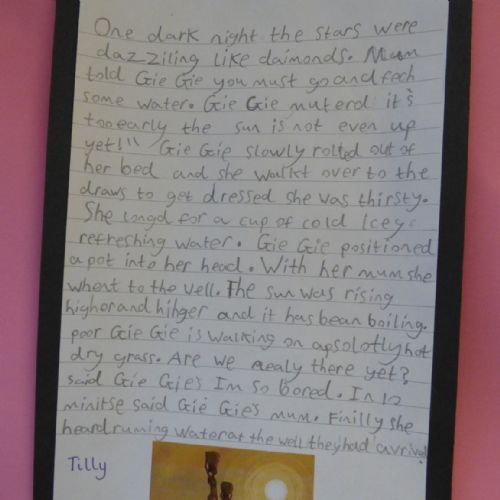 One dark night the stars were
dazziling like daimonds. Mum
told Gie Gie you must go and fech
some water. Gie Gie muterd it's
too early the sun is not even up
yet!" Gie Gie slowly rolled out of
her bed and she walkt over to the
draws to get dressed she was thirsty.
She longd for a cup of cold Icey
refreshing water. Gie Gie positioned
a pot into her head. With her mum she
whent to the well. The sun was rising
highor and hihger and it has bean boiling.
poor Gie Gie is walking on apsolotly hot
dry grass. Are we realy there yet?
said Gie Gie's Im so bored. In 12
minitse said Gie Gie's mum. Finilly she
heard runing water at the well they had avrived
Tilly